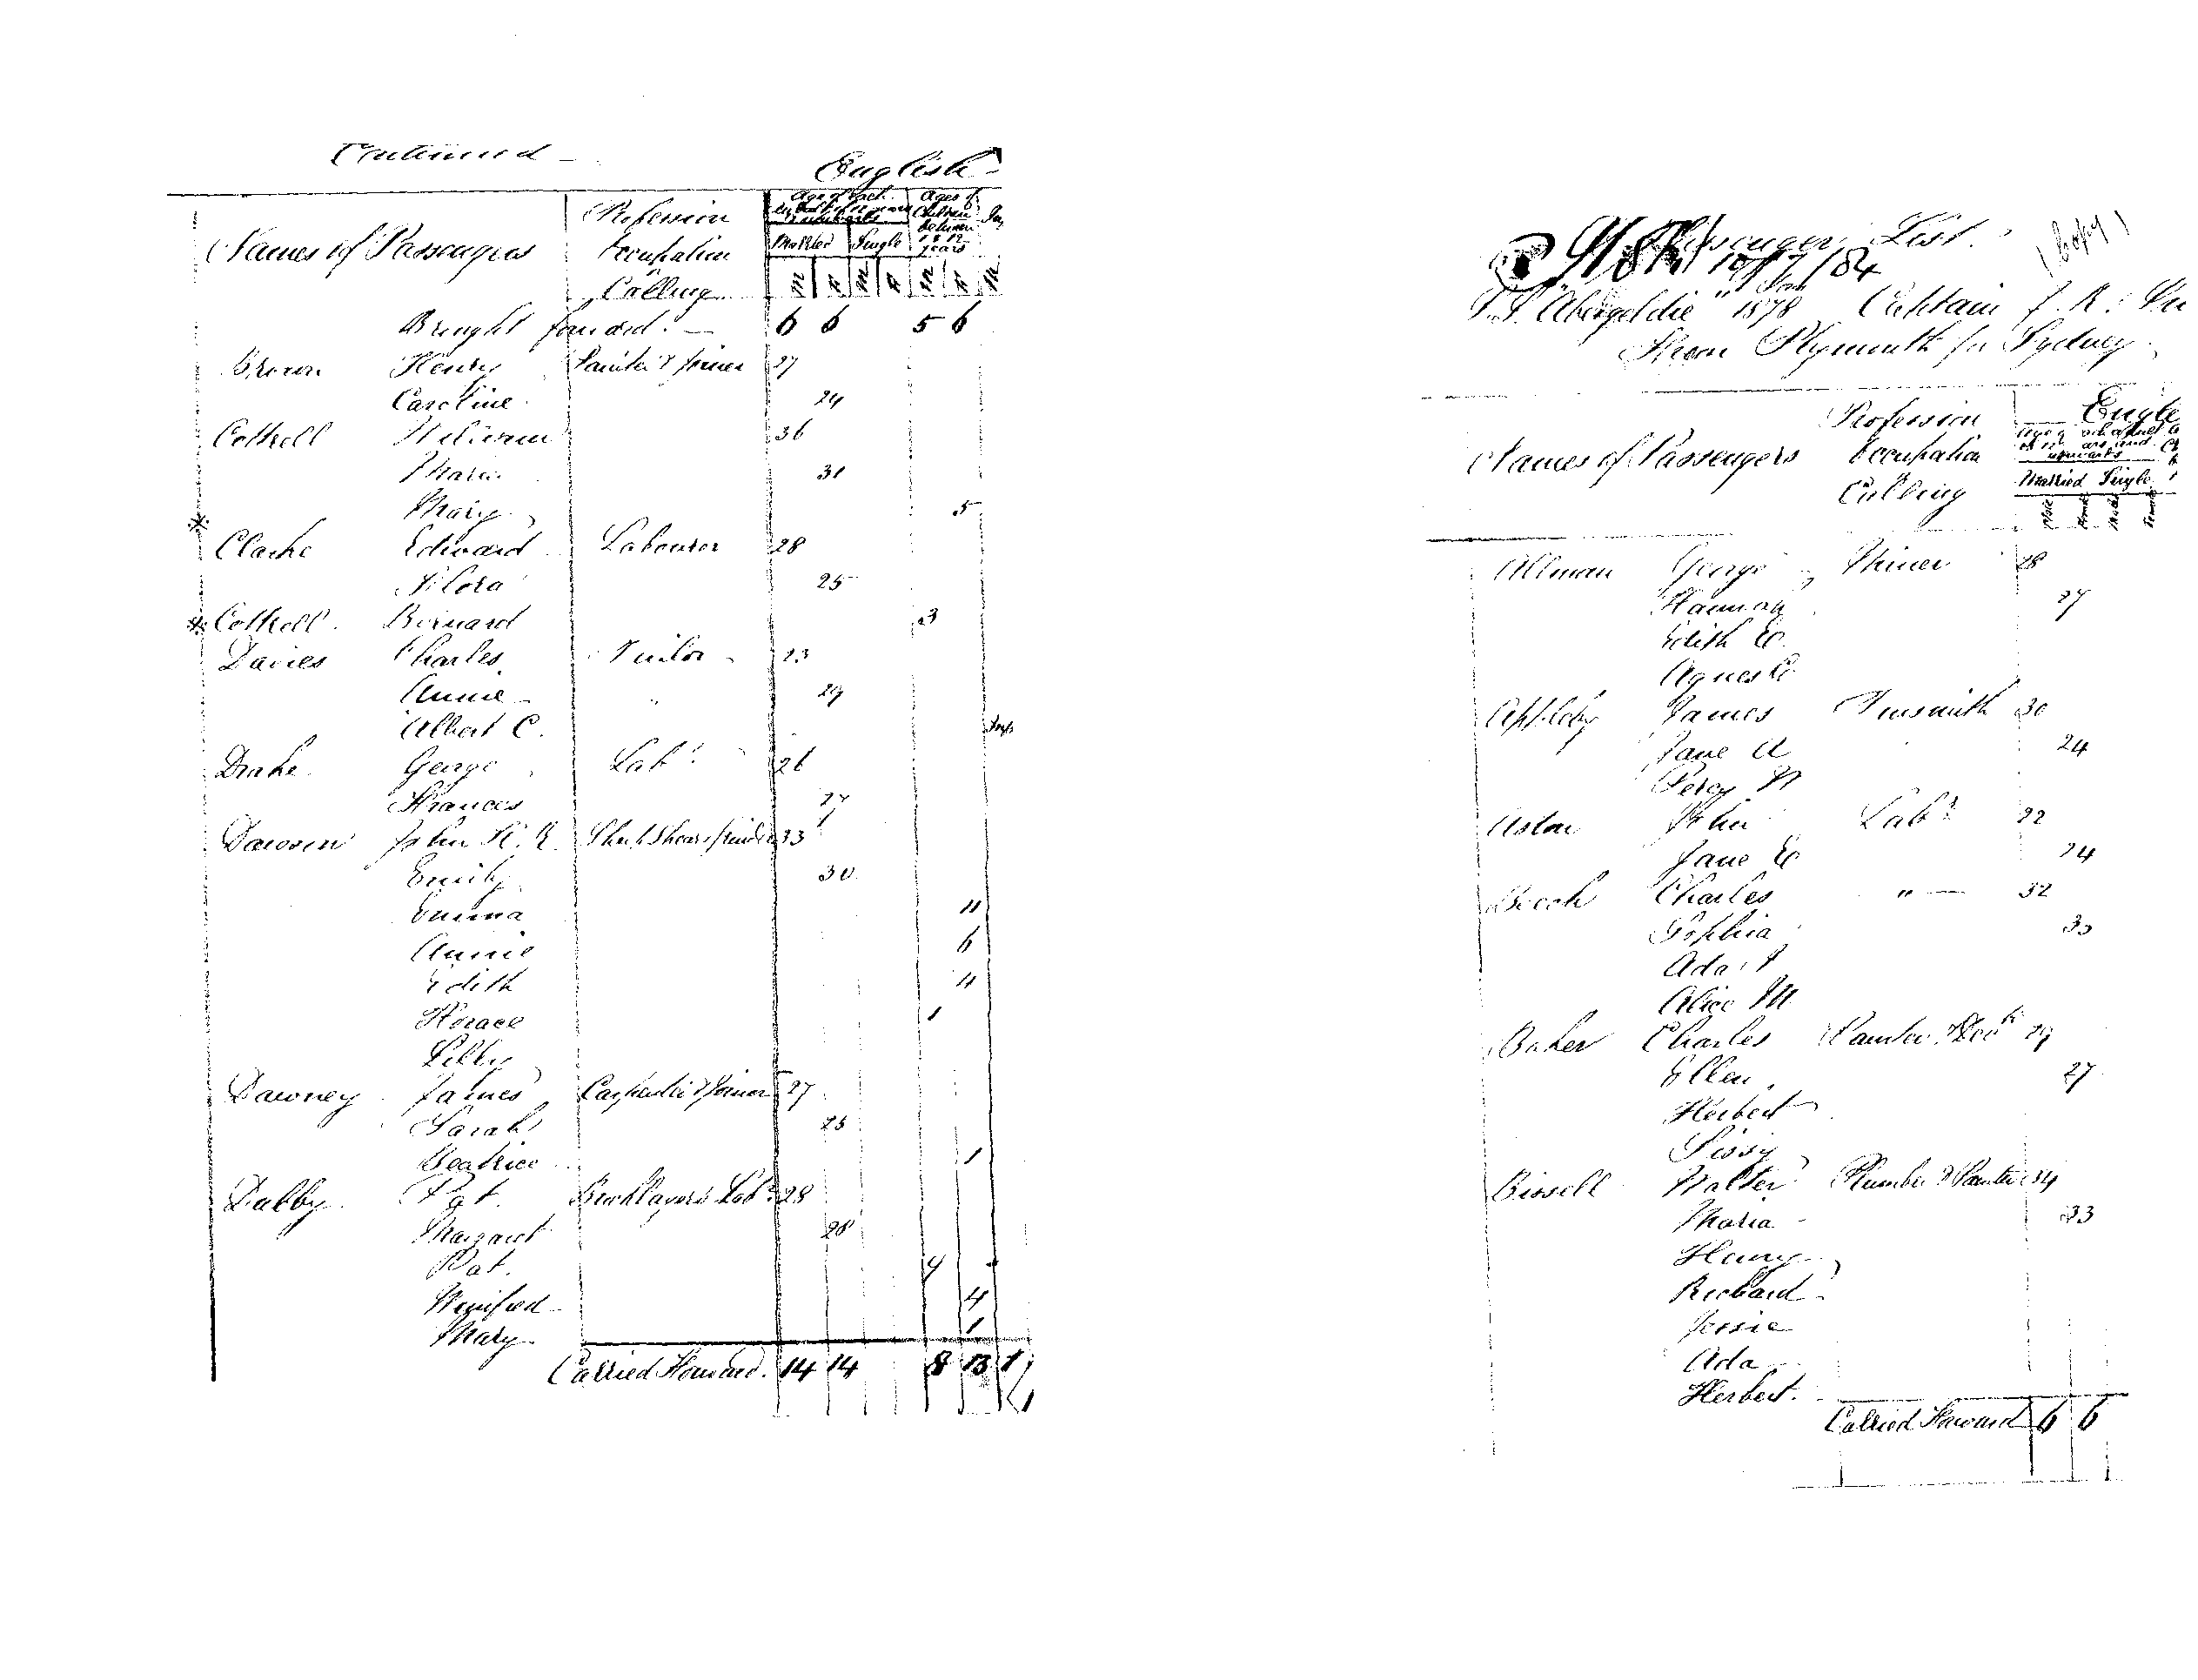 Continued
English
Names of Passengers
Profession
Occupation
Calling
Married Single
Brought forward. 6 6 5 6
Brown Henry Painter & Joiner 27
Caroline 24
Cottrell William 36
Maria 31
Mary 5
* Clarke Edward Labourer 28
Flora 25
* Cottrell Bernard 3
Davies Charles 23
Annie 29
Albert C. Inft
Drake George Labr 26
Frances 27
Dawson John 33
Emily 30
Emma 11
Annie 6
Edith 4
Horace 1
Lilly
Dawney James Carpenter & Joiner 27
Sarah 25
Beatrice 1
Dalby Pat. Bricklayers Labr 28
Margaret 28
Pat. 4
Winifred 4
Mary 1
Carried Forward. 14 14 8 13 1
Passenger List.
(Copy)
S.S. "Abergeldie" Captain
From Plymouth for Sydney
Names of Passengers
Profession
Occupation
Calling
Married Single
Allman George Miner 28
Hannah 27
Edith E.
Agnes
Appleby James Tinsmith 30
Jane A 24
Percy
Aston John Labr 22
Jane E 24
Beech Charles " 32
Sophia 30
Ada
Alice M
Baker Charles 29
Ellen 27
Herbert
Sissy
Bissell Walter Plumber & Painter 34
Maria 33
Henry
Richard
Jessie
Ada
Herbert.
Carried Forward 6 6